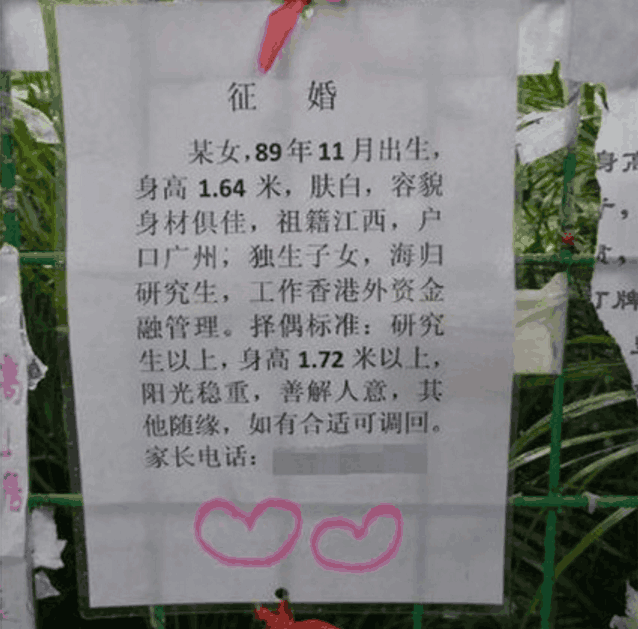 征 婚
某女，89年11月出生，
身高1.64米，肤白，容貌
身材俱佳，祖籍江西，户
口广州；独生子女，海归
研究生，工作香港外资金
融管理。择偶标准：研究
生以上，身高1.72米以上，
阳光稳重，善解人意，其
他随缘，如有合适可调回。
家长电话：
身高
牌